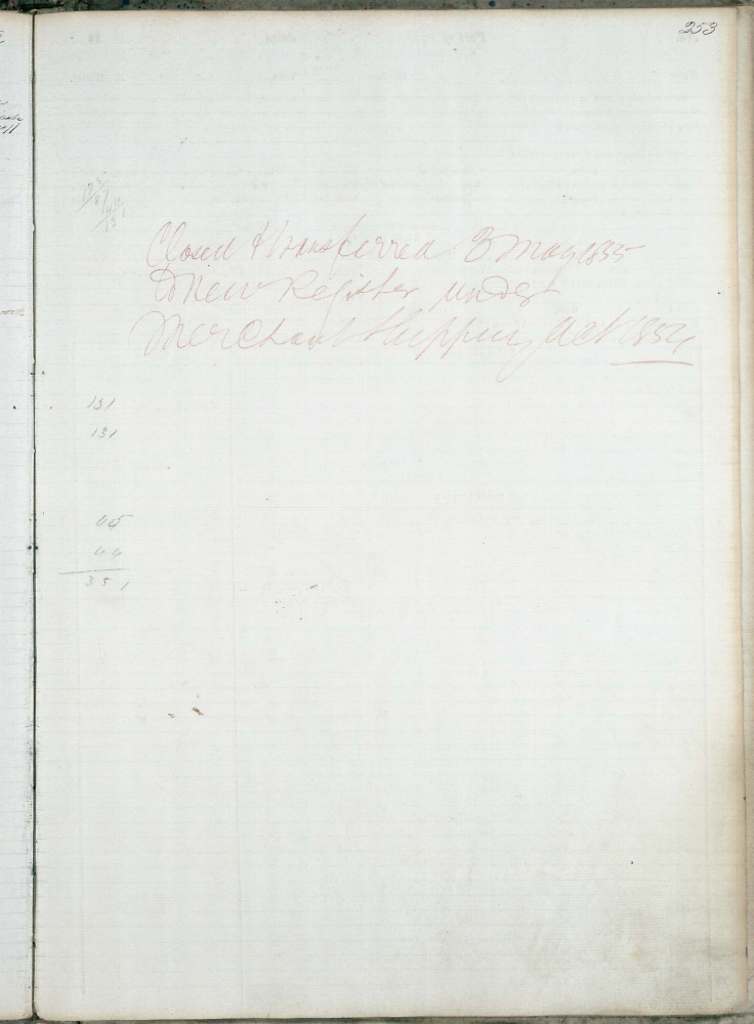 253
Closed & transferred 3 May 1855
to New Register under
Merchant Shipping Act 1854
131
131
45
44
351